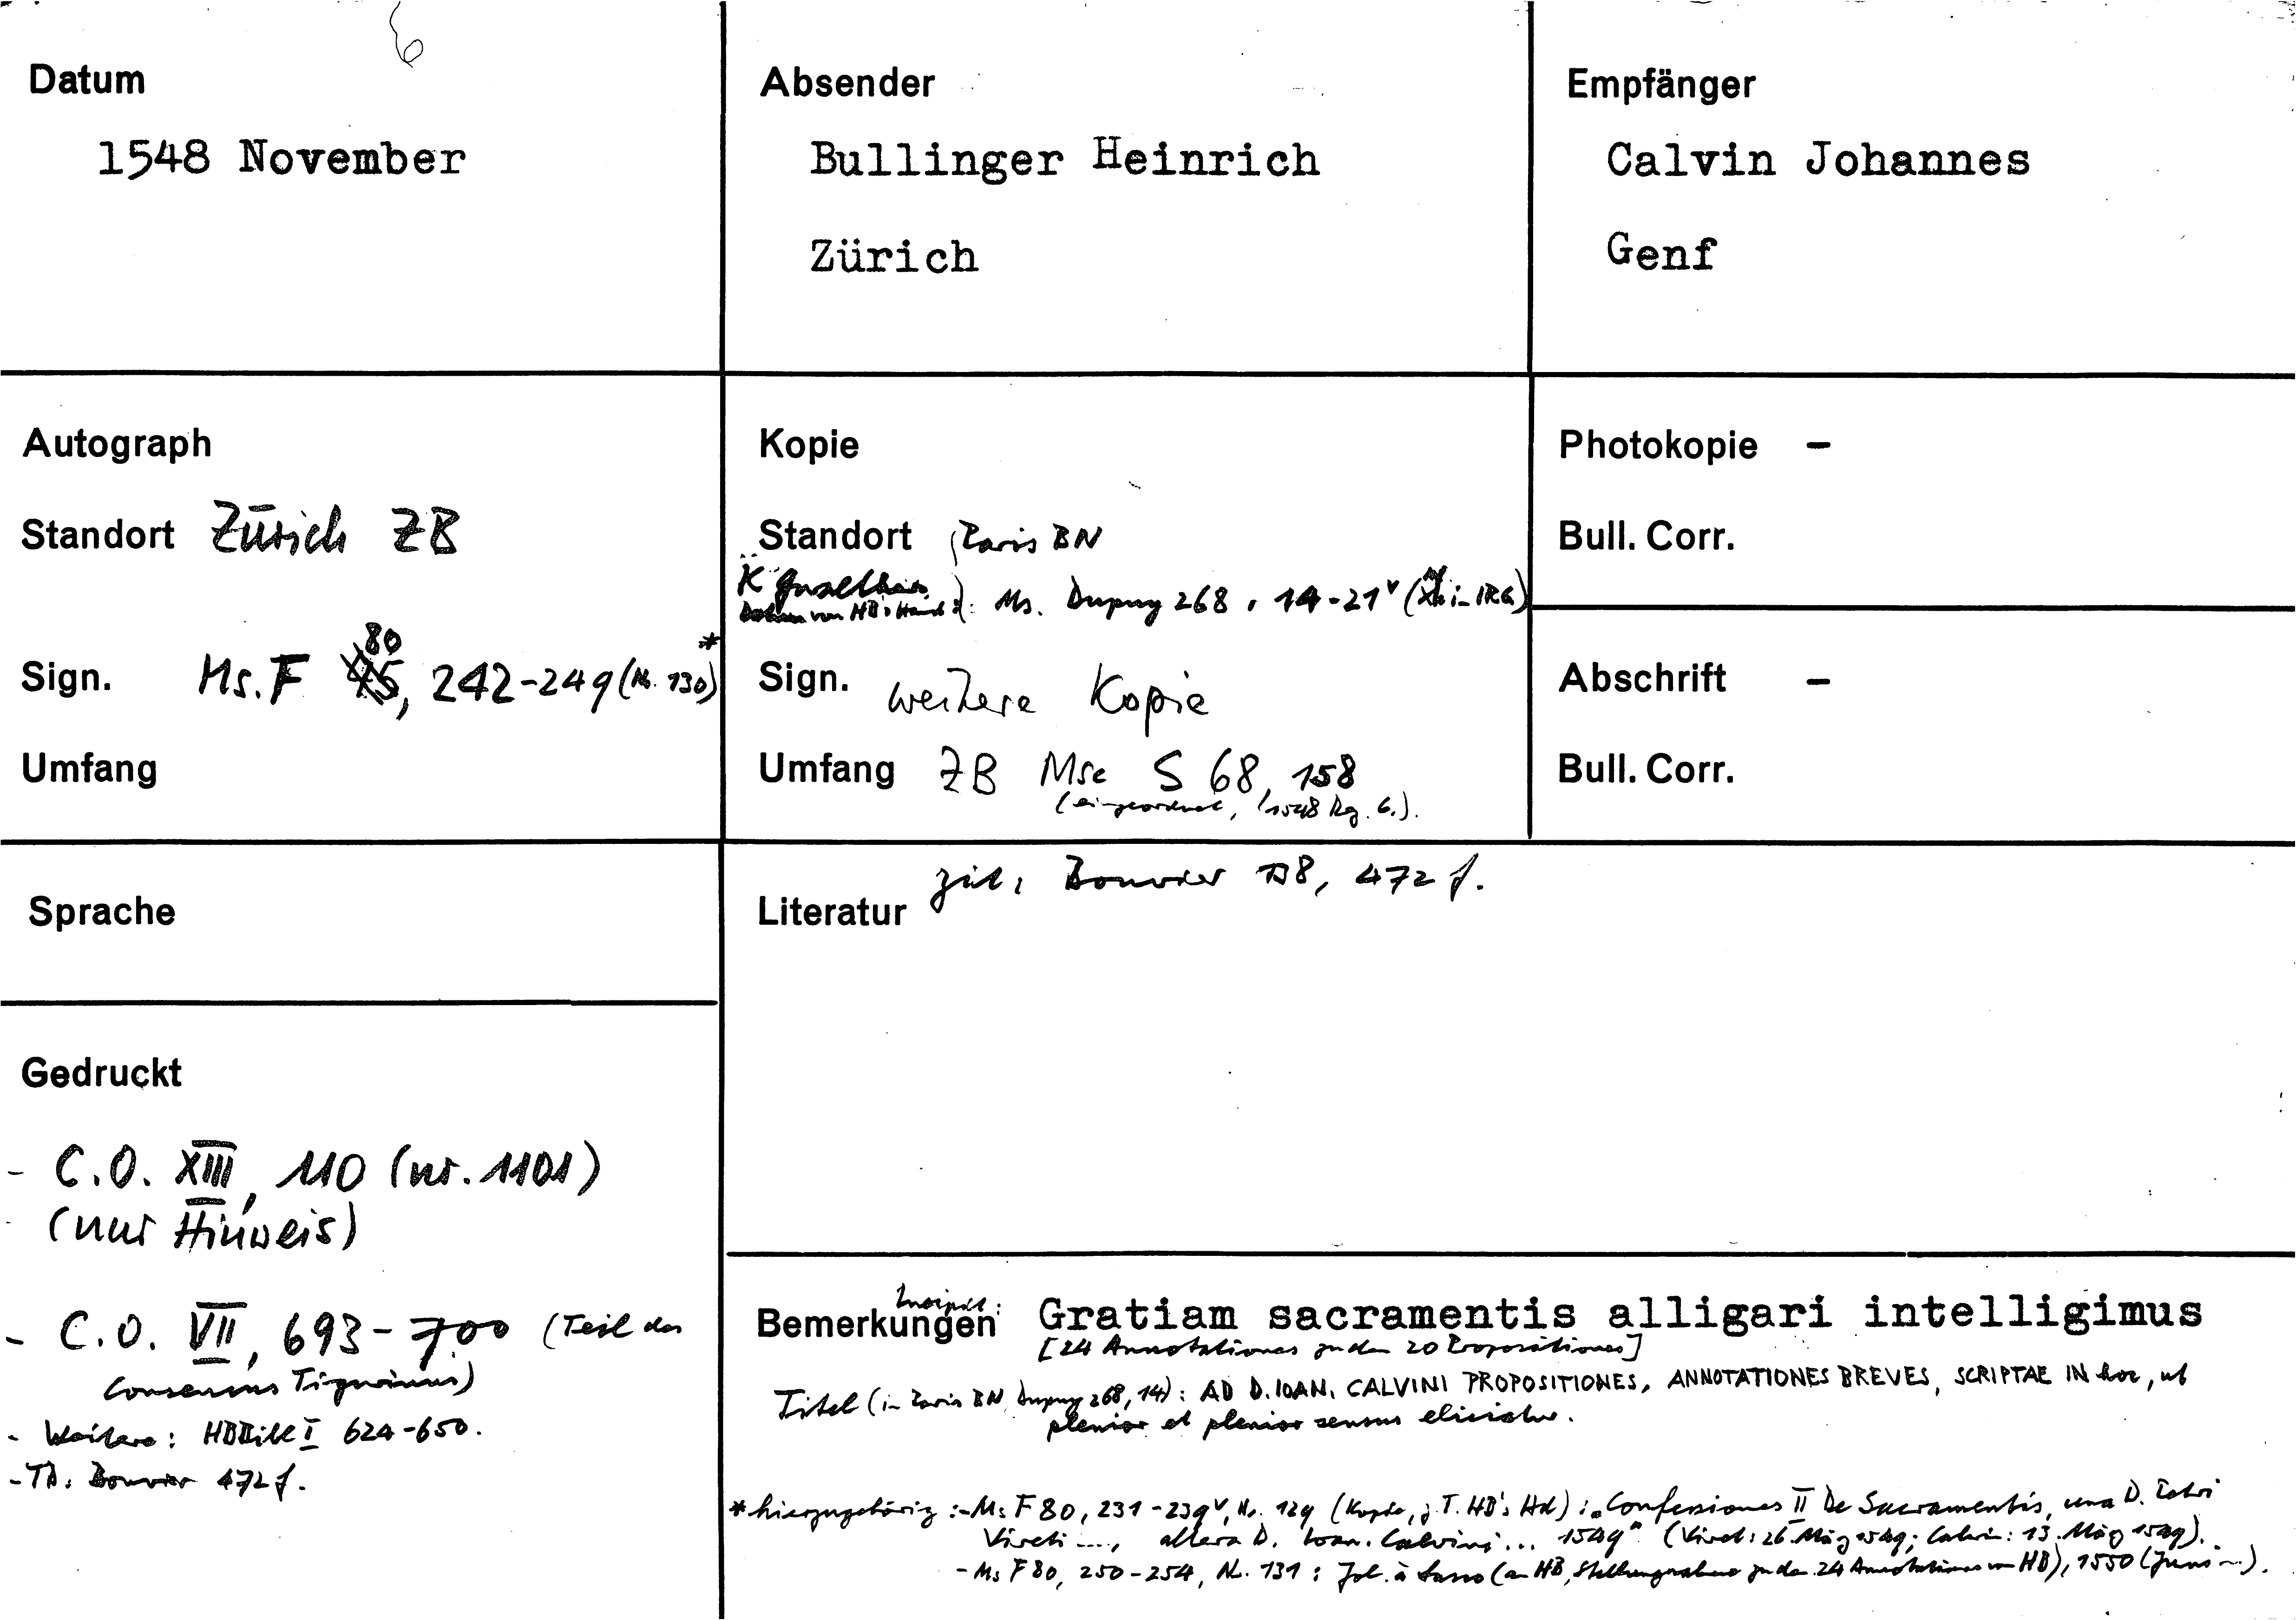 Datum
1548 November
Absender
Bullinger Heinrich
Zürich
Empfänger
Calvin Johannes
Genf
Autograph
Standort Zürich ZB
Sign. Ms. F 80, 242-249 (Nr. 130)*
Umfang
Kopie
Standort Paris BN
K
von HB's Hand: Ms. Dupuy 268, 14-21v (in IRG)
Sign. weitere Kopie
Umfang ZB Msc S 68, 158
(eingeordnet, (1548 Reg. 6.).
Photokopie –
Bull. Corr.
Abschrift –
Bull. Corr.
Sprache
Literatur zit. Bouvier 138, 472 f.
Gedruckt
- C.O. XIII, 110 (nr. 1101)
(nur Hinweis)
- C.O. VII, 693-700 (Teil des
Consensus Tigurinus)
- Weitere: HBBibl I 624-650.
- Td: Bouvier 472 f.
Bemerkungen Incipit: Gratiam sacramentis alligari intelligimus
[24 Annotationes zu den 20 Propositiones]
Titel (in Paris BN, Dupuy 268, 14): AD D. IOAN. CALVINI PROPOSITIONES, ANNOTATIONES BREVES, SCRIPTAE IN hoc, ut
plenior et plenior sensus eliciatur.
* hierzugehörig: - Ms F 80, 231-239v, Nr. 129 (Kopie, z. T. HB's Hd): "Confessiones II De Sacramentis, una D. Petri
Vireti ..., altera D. Ioan. Calvini ... 1549" (Viret: 26. März 1549; Calvin: 13. März 1549).
- Ms F 80, 250-254, Nr. 131: Joh. à Lasco (an HB, Stellungnahme zu den 24 Annotationes von HB), 1550 (Juni ...).